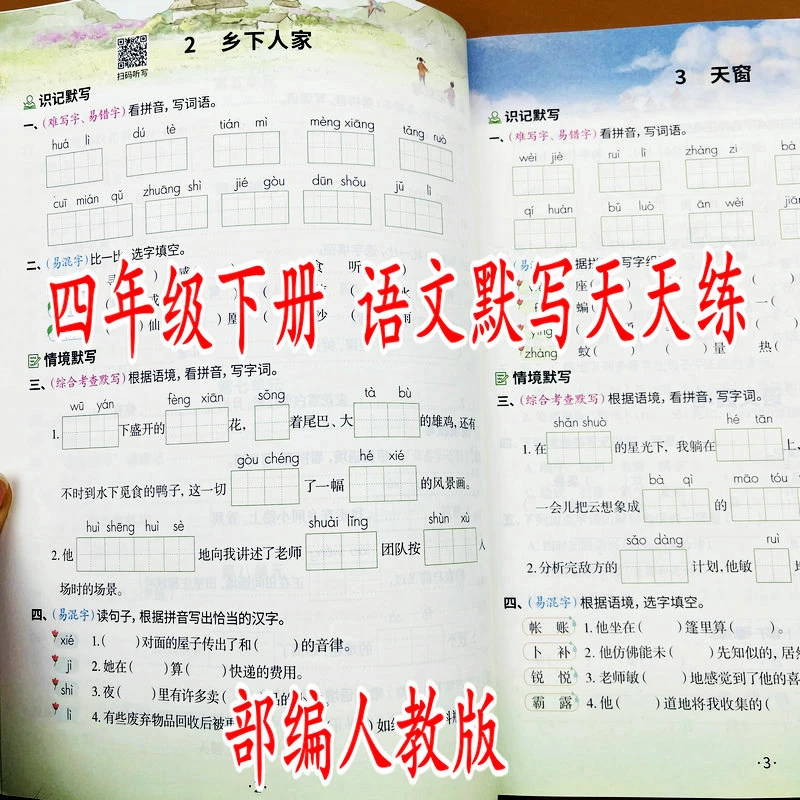 2 乡下人家
扫码听写
识记默写
一、(难写字、易错字)看拼音,写词语。
huá lì dú tè tián mì mèng xiāng tǎng ruò
cuī mián qǔ zhuāng shì jié gòu dūn shǒu jǔ lì
二、(易混字)比一比,选字填空。
情境默写
三、(综合考查默写)根据语境,看拼音,写字词。
wū yán fèng xiān sǒng tà bù
1. 下盛开的 花, 着尾巴、大 的雄鸡,还有
gòu chéng hé xié
不时到水下觅食的鸭子,这一切 了一幅 的风景画。
huì shēng huì sè shuài lǐng shùn xù
2. 他 地向我讲述了老师 团队按 入
场时的场景。
四、(易混字)读句子,根据拼音写出恰当的汉字。
xié 1.( )对面的屋子传出了和( )的音律。
jì 2.她在( )算( )快递的费用。
shì 3.夜( )里有许多卖( )
lì 4.有些废弃物品回收后被
3 天窗
识记默写
一、(难写字、易错字)看拼音,写词语。
wèi jiè ruì lì zhàng zi bà
qí huàn bǔ luò àn dàn wū
zhàng 蚊( ) ( )量 热(
情境默写
三、(综合考查默写)根据语境,看拼音,写字词。
shǎn shuò hé tān
1. 在 的星光下,我躺在 上,
bà qì māo tóu
一会儿把云想象成 的
sǎo dàng ruì
2. 分析完敌方的 计划,他敏
四、(易混字)根据语境,选字填空。
帐 账 1.他坐在( )篷里算( )。
卜 补 2.他仿佛能未( )先知似的,居然
锐 悦 3.老师敏( )地感觉到了他的喜
霸 露 4.他( )道地将我收集的(
·3·
四年级下册 语文默写天天练
部编人教版